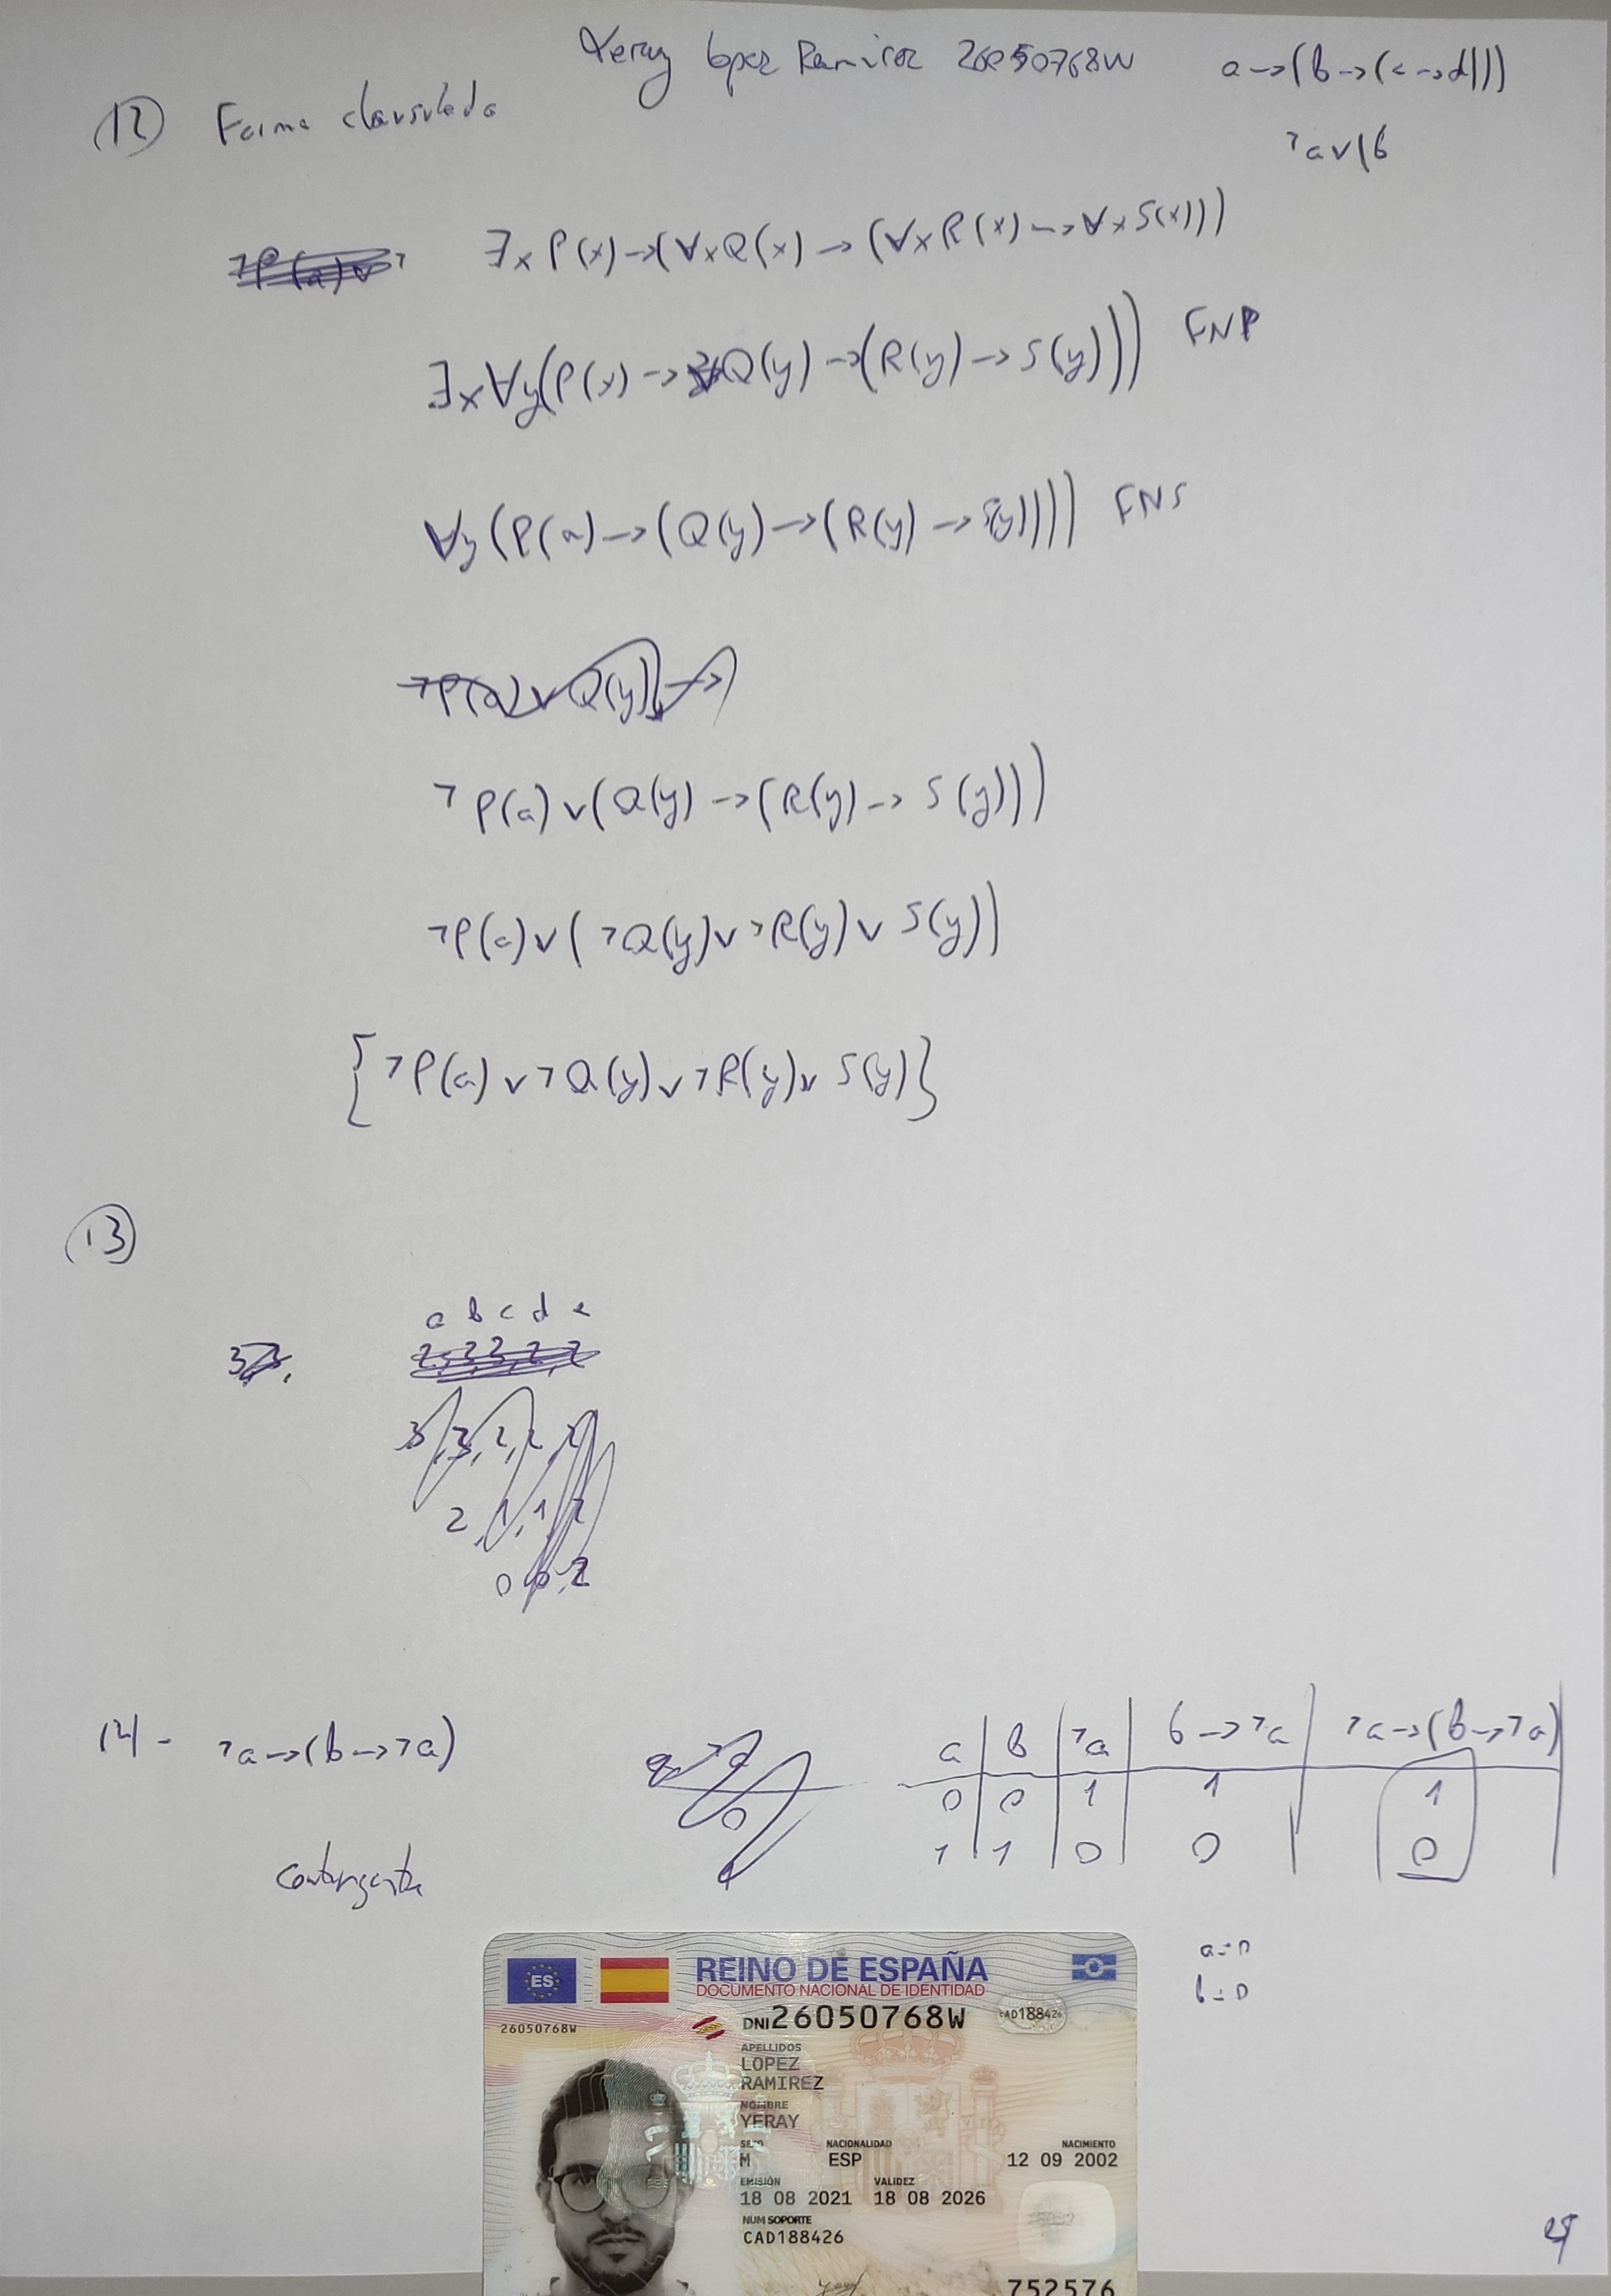 Yeray lopez Ramirez 26050768W
a→(b→(c→d)))
(12) Forma clausulada
¬a∨(b
∃x P(x)→(∀x Q(x)→(∀x R(x)→∀x S(x)))
∃x∀y(P(x)→Q(y)→(R(y)→S(y))) FNP
∀y(P(a)→(Q(y)→(R(y)→S(y)))) FNS
¬P(a)∨Q(y)→
¬P(a)∨(Q(y)→(R(y)→S(y)))
¬P(a)∨(¬Q(y)∨¬R(y)∨S(y))
{¬P(a)∨¬Q(y)∨¬R(y)∨S(y)}
(13)
a b c d e
3,3,2,2,2
2,1,1,2
0 0,2
14- ¬a→(b→¬a)
a b ¬a b→¬a ¬a→(b→¬a)
0 0 1 1 1
1 1 0 0 0
contingente
a=0
b=0
REINO DE ESPAÑA
DOCUMENTO NACIONAL DE IDENTIDAD
ES
26050768W
DNI 26050768W
CAD188426
APELLIDOS
LOPEZ
RAMIREZ
NOMBRE
YERAY
SEXO NACIONALIDAD NACIMIENTO
M ESP 12 09 2002
EMISIÓN VALIDEZ
18 08 2021 18 08 2026
NUM SOPORTE
CAD188426
752576